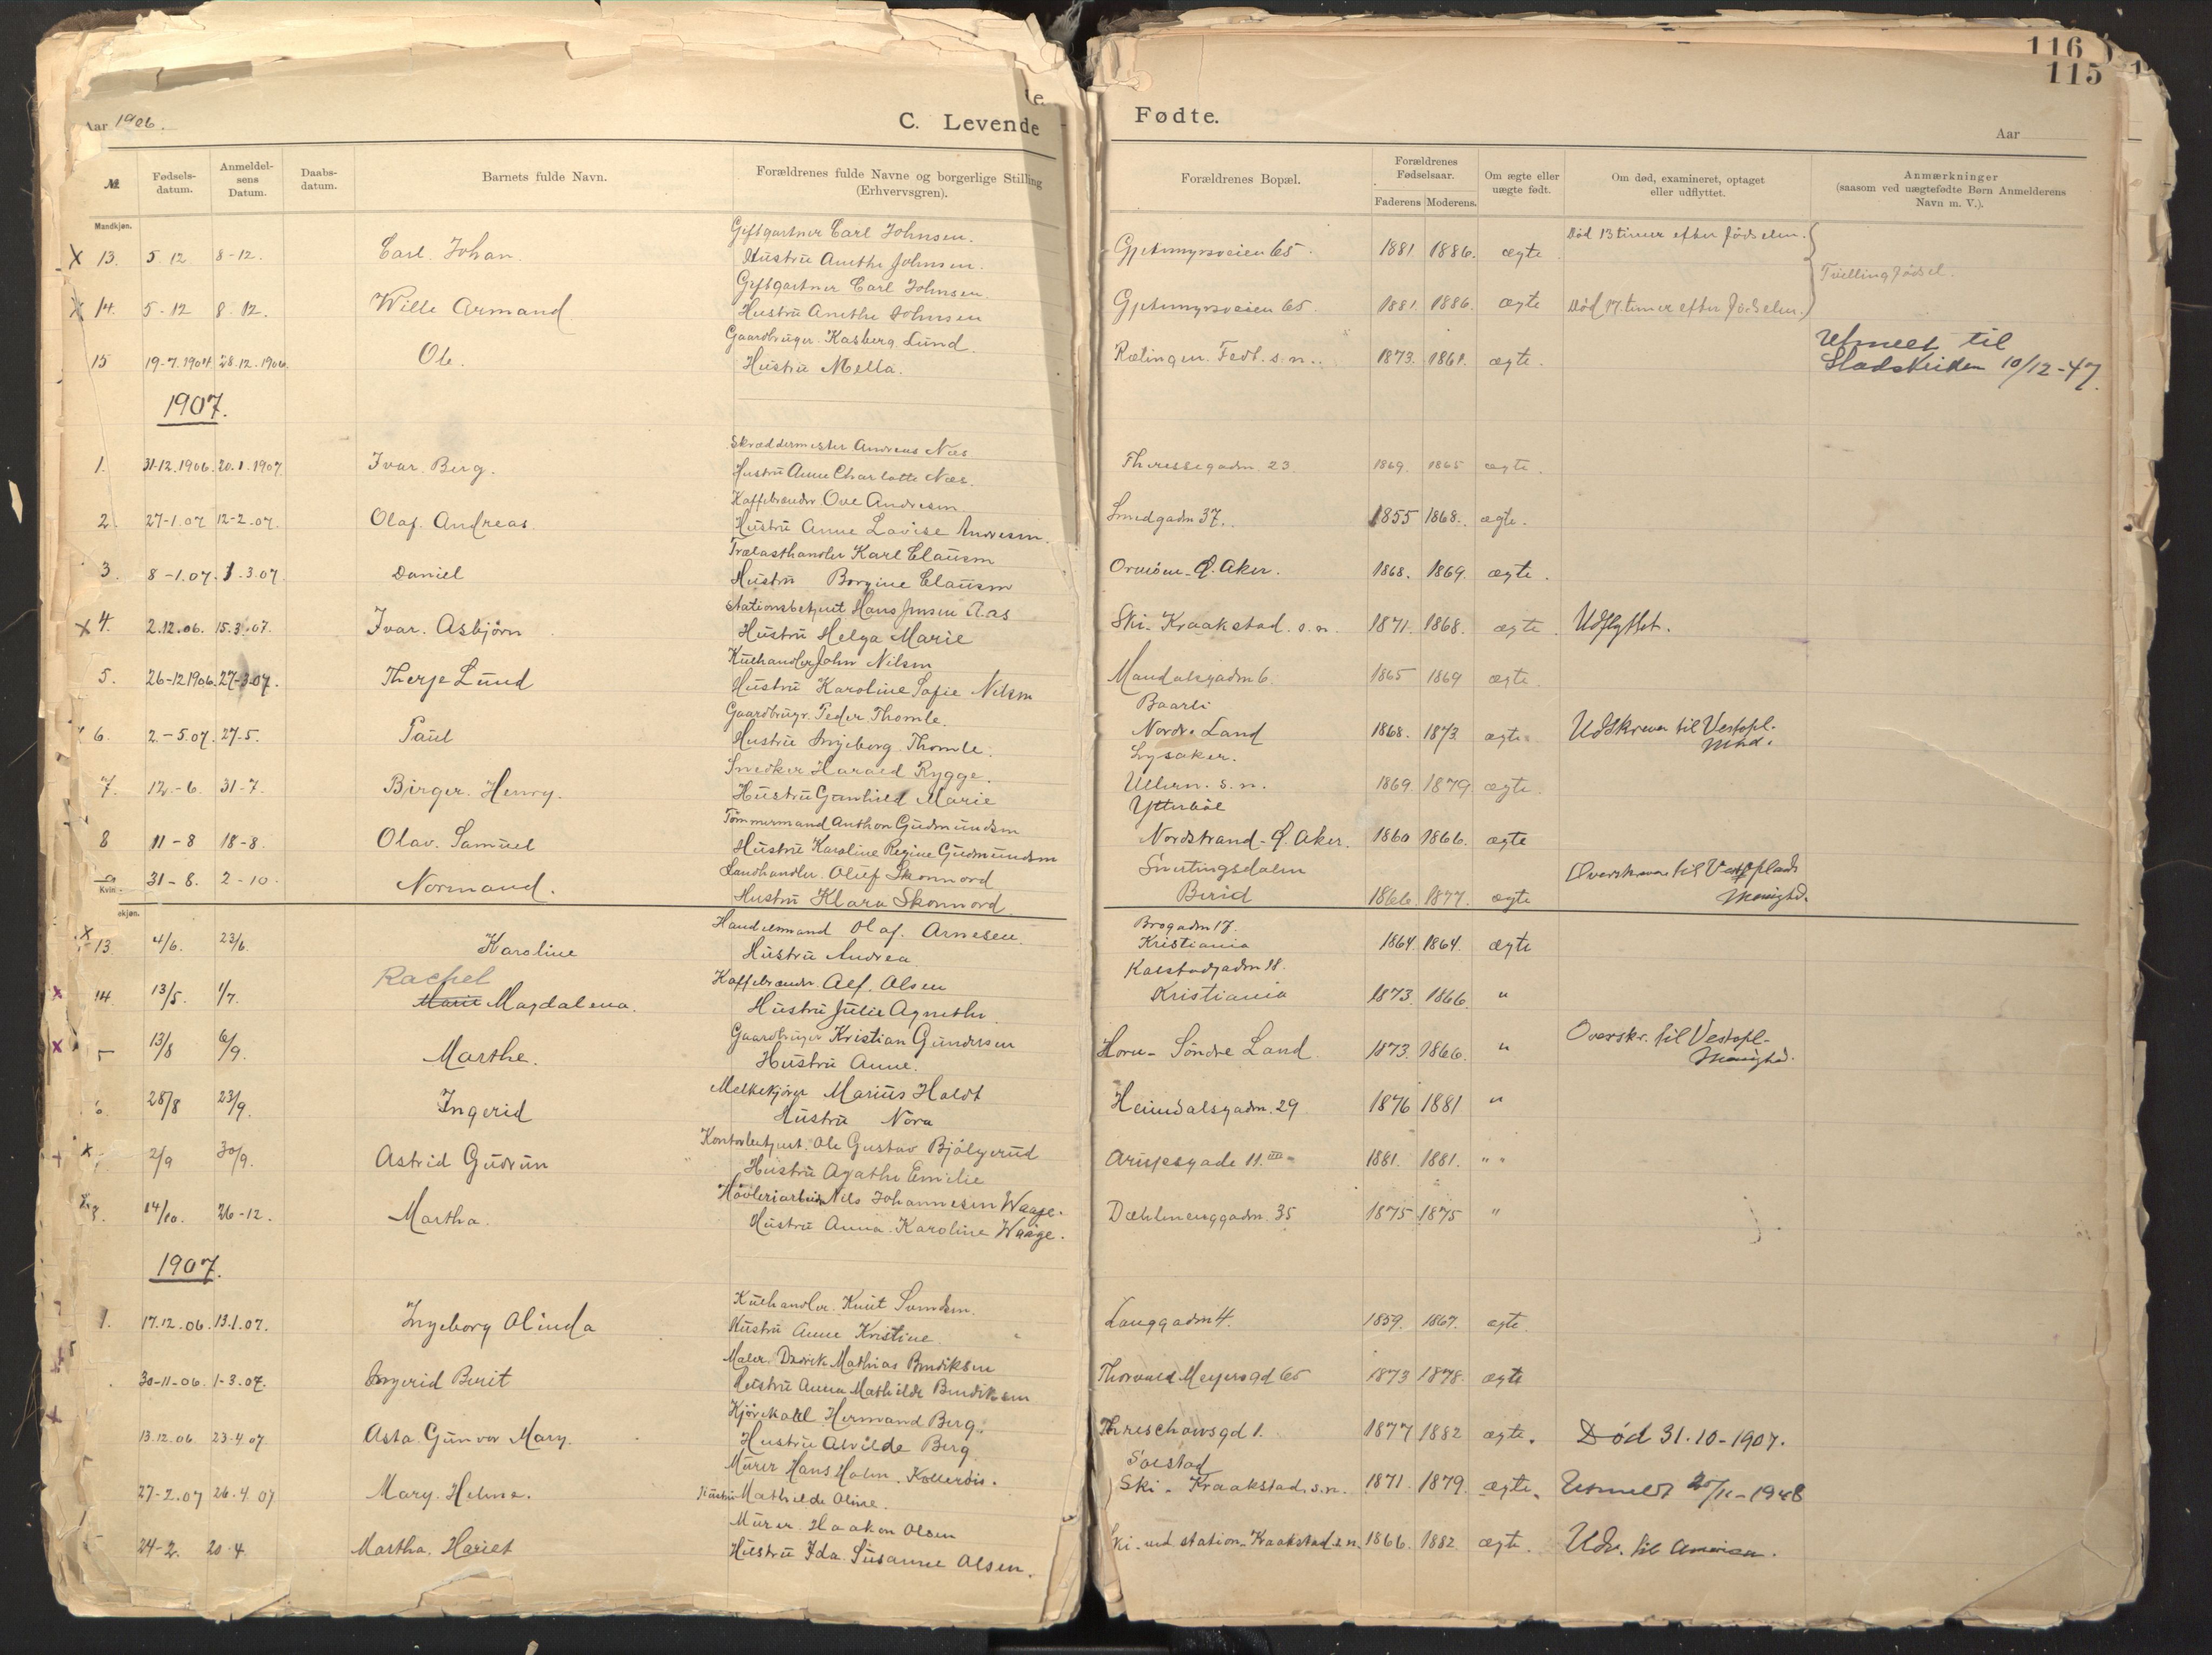 116
115
Aar 1906.
C. Levende
Fødte.
Aar
№
Fødsels-datum.
Anmeldel-sens Datum.
Daabs-datum.
Barnets fulde Navn.
Forældrenes fulde Navne og borgerlige Stilling (Erhvervsgren).
Forældrenes Bopæl.
Forældrenes Fødselsaar.
Faderens Moderens.
Om ægte eller uægte født.
Om død, examineret, optaget eller udflyttet.
Anmærkninger (saasom ved uægtefødte Børn Anmelderens Navn m. V.).
Mandkjøn.
Carl Johnsen.
X 13. 5 12 8-12. Carl. Johan Hustru Anethe Johnsen. Gjetemyrsveien 65. 1881. 1886. ægte Død 13 timer efter fødselen.
Carl Johnsen
Tvillingfødsel.
X 14. 5-12 8. 12. Wille Armand Hustru Anethe Johnsen Gjetemyrsveien 65. 1881. 1886. ægte Død 17 timer efter fødselen.
Gaardbruger. Kasberg Lund.
15 19-7.1904 28.12.1906. Ole. Hustru Mella. Rælingen. Fedt. s. n. 1873. 1861. ægte. Utmeldt til Stadskirken 10/12-47.
1907.
Skræddermester Andreas Næs
1. 31-12.1906. 20.1.1907. Ivar. Berg. Hustru Anne Charlotte Næs. Theresegaden. 23. 1869. 1865 ægte.
Kaffebrænder. Ove Andresen
2. 27-1.07 12-2.07. Olaf. Andreas Hustru Anne Lovise Andresen. Smedgaden 37. 1855 1868. ægte.
Trælasthandler Karl Clausen
3. 8-1.07. 1.3.07. Daniel Hustru Borgine Clausen Ormöen - Ø. Aker. 1868. 1869. ægte.
Stationsbetjent Hans Jensen Aas
X 4. 2.12.06. 15.3.07. Ivar. Asbjørn Hustru Helga Marie Ski. Kraakstad. s. n. 1871. 1868. ægte. Udflyttet.
Kulhandler John Nilsen
5. 26-12 1906. 27-3-07. Therje Lund Hustru Karoline Sofie Nilsen Mandalsgaden 6. 1865 1869 ægte.
Gaardbrugr. Peder. Thomle. Baarli
6. 2.-5.07. 27-5. Paul Hustru Ingeborg. Thomle. Nordre Land 1868. 1873. ægte. Udskreven til Vestopl. Mhd.
Snedker Harald Rygge. Lysaker.
7. 12.-6. 31-7. Birger. Henry. Hustru Gunhild Marie Ullern. s. n. 1869. 1879 ægte.
Tømmermand Anthon Gudmundsen
8 11-8 18-8. Olav. Samuel Hustru Karoline Regine Gudmundsen Nordstrand - Ø. Aker. 1860 1866. ægte
Landhandler. Oluf Skonnord Snertingsdalen
9 31-8. 2-10. Normand. Hustru Klara Skonnord Birid 1866. 1877. ægte Overskreven til Vestoplands Menighed.
Kvindekjøn.
Handelsmand Olaf. Arnesen. Brogaden 17.
X 13. 4/6. 23/6. Karoline Hustru Andrea Kristiania 1864. 1864. ægte
Rachel Kaffebrænder. Alf. Olsen Kalstadgaden 18.
X 14. 13/5. 1/7. Marie Magdalena. Hustru Julie Agnethe. Kristiania 1873. 1866. "
Gaardbruger Kristian Gundersen
X 5 13/8 6/9. Marthe. Hustru Anne. Horn - Söndre Land. 1873. 1866. " Overskr. til Vestopl. Menighed.
Melkekjører Marius Holdt
6. 28/8 23/9. Ingerid Hustru Nora Heimdalsgaden. 29 1876 1881 "
Kontorbetjent. Ole Gustav Bjölgerud
X 2/9 30/9. Astrid Gudrun Hustru Agathe Emilie Arupsgade 11. III 1881. 1881. " "
Høvleriarbeider Nils Johannesen Waage.
14/10. 26-12. Martha. Hustru Anna. Karoline Waage. Dæhlenenggaden. 35 1875 1875 "
1907.
Kulhandler. Knut Svendsen.
1. 17.12.06. 13.1.07. Ingeborg Olinda Hustru Anne Kristine. Langgaden 4. 1859. 1867. ægte
Maler. Didrik Mathias Bendiksen
30-11-06. 1-3.07. Ingerid Berit Hustru Anna Mathilde Bendiksen Thorvald Meyersgd 65 1873 1878. ægte
Herman Berg.
13.12.06. 23.4.07 Asta. Gunvor Mary. Hustru Alvilde Berg Threschowsgd 1. 1877 1882 ægte. Død 31.10-1907.
Murer Hans Holm. Solstad
27-2.07 26.4.07 Mary. Helene. Hustru Mathilde Oline. Ski - Kraakstad. s. n. 1871. 1879. ægte. Utmeldt 25/11-1948
Murer. Haakon Olsen
24-2. 20.4 Martha. Hariet Hustru Ida. Susanne Olsen. Ski. ved station. Kraakstad s n. 1866. 1882 ægte. Udv. til America.